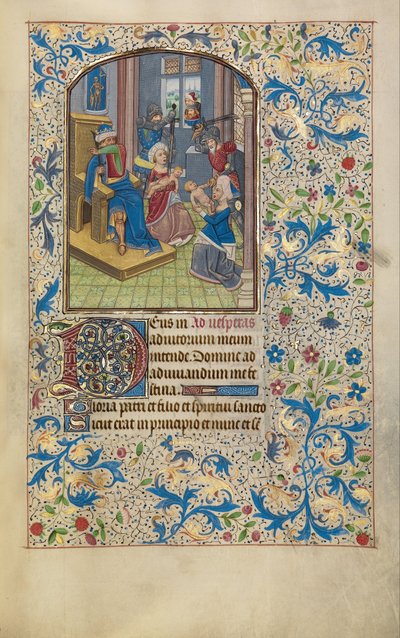 Deus in Ad vesperas
adiutorium meum
intende. Domine ad
adiuuandum me fe
stina.
Gloria patri et filio et spiritui sancto
Sicut erat in principio et nunc et se